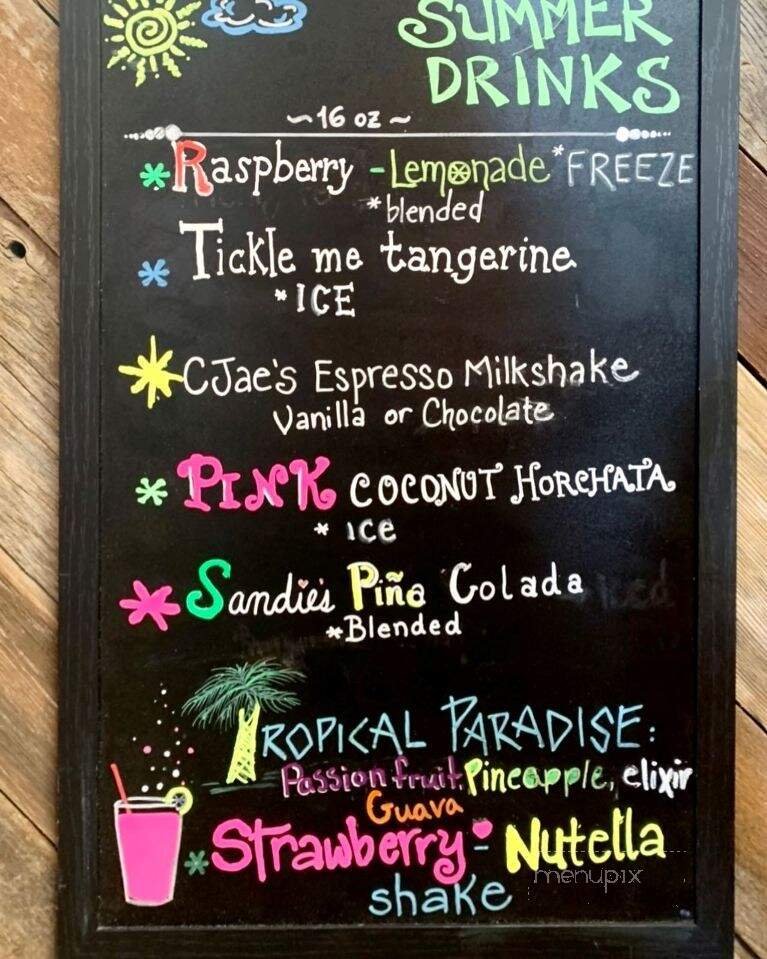 SUMMER
DRINKS
~16 oz~
*Raspberry - Lemonade *FREEZE
*blended
*Tickle me tangerine
*ICE
*CJae's Espresso Milkshake
Vanilla or Chocolate
*PINK COCONUT HORCHATA
* ice
*Sandie's Piña Colada
*Blended
TROPICAL PARADISE:
Passion fruit, Pineapple, elixir
Guava
*Strawberry - Nutella
shake
menupix